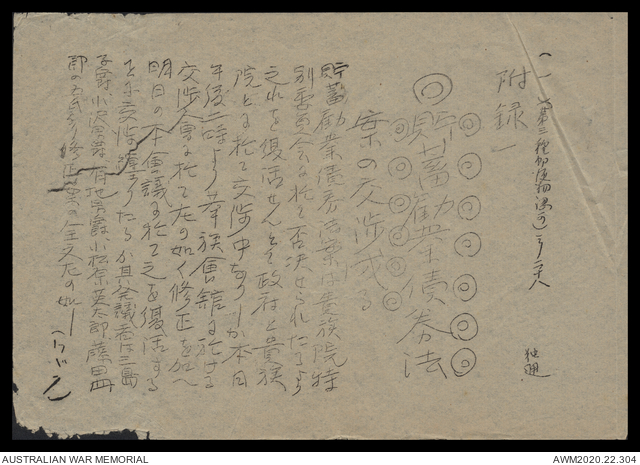 (一
(第三種郵便物認可)
附録一
独逸
◎貯蓄勧業債券法
案の交渉成る
貯蓄勧業債券法案は貴族院特
別委員会に於て否決せられたるより
之れを復活せんとて政府と貴族
院とに於て交渉中なりしが本日
午後二時より華族会館に於ける
交渉会に於て左の如く修正を加へ
明日の本会議に於て之を復活する
に交渉纏まりたるが其発議者は三島
子爵小沢男爵有地男爵小松原英太郎藤田四
郎の五氏なり修正案の全文左の如し
(つづく)
AUSTRALIAN WAR MEMORIAL
AWM2020.22.304